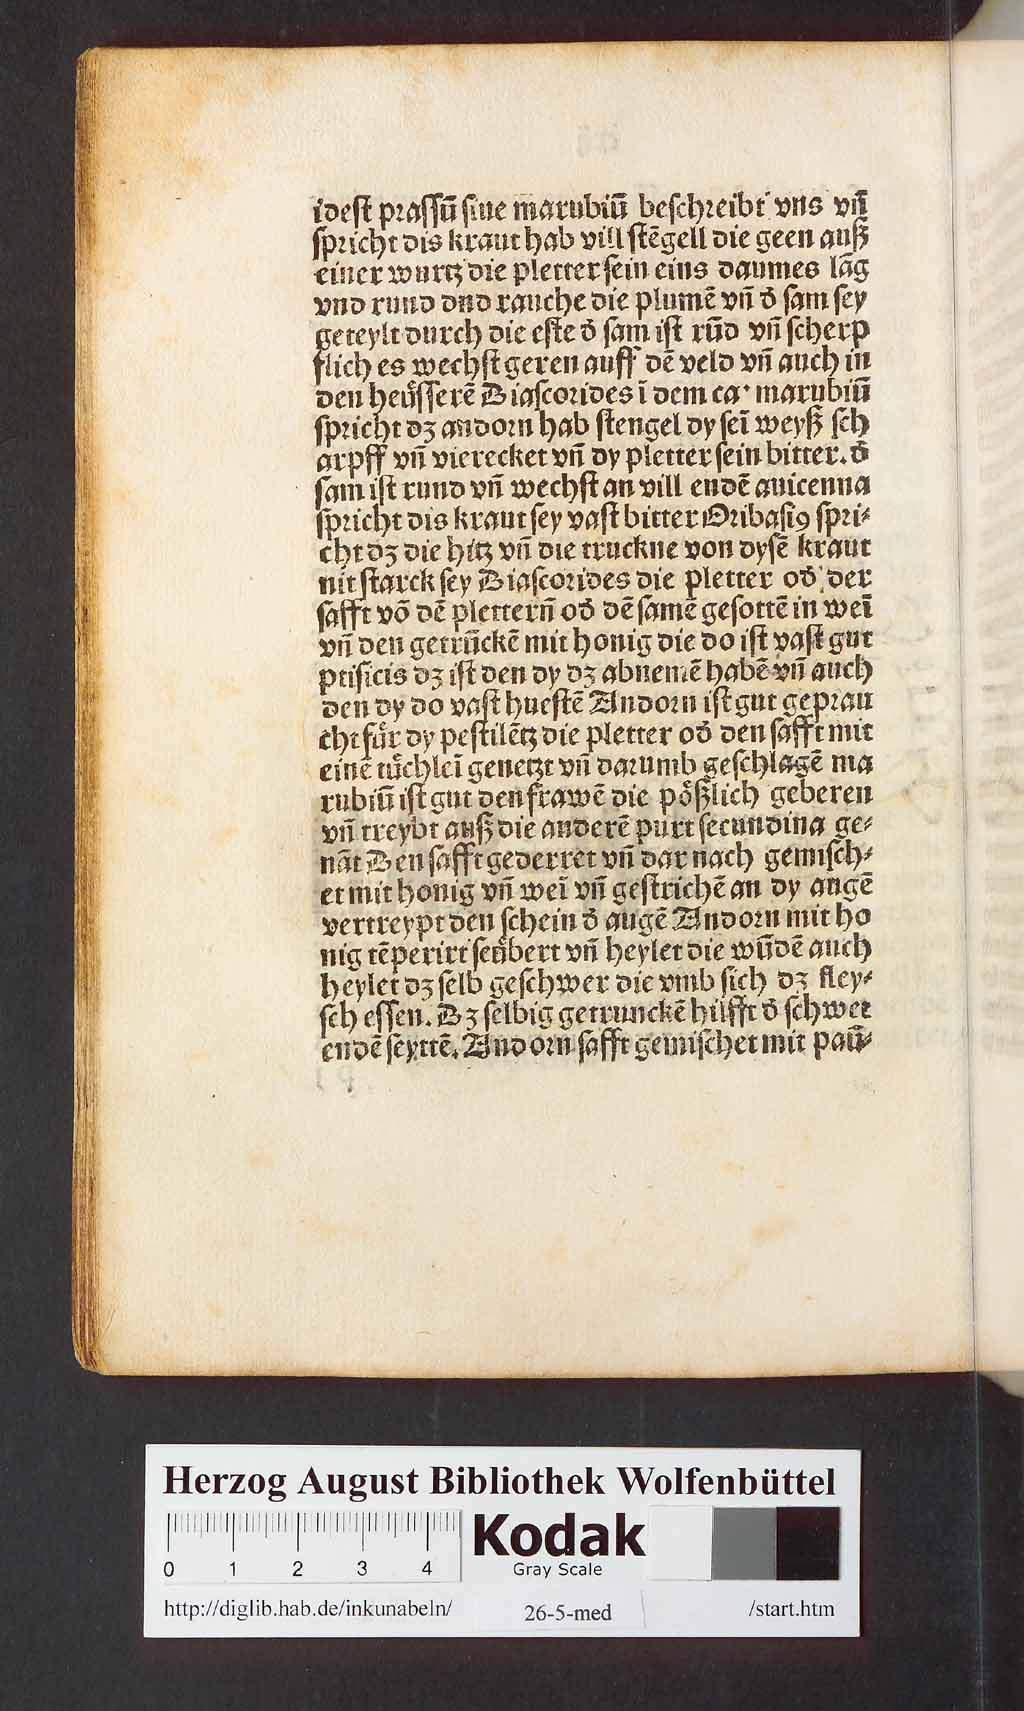 idest prassū siue marubiū beschreibt vns vn̄
spricht dis kraut hab vill stēgell die geen auß
einer wurtz die pletter sein eins daumes lāg
vnd rund dnd rauche die plumē vn̄ d̄ sam sey
geteylt durch die este d̄ sam ist rūd vn̄ scherp
flich es wechst geren auff dē veld vn̄ auch in
den heüsserē Diascorides ī dem ca· marubiū
spricht dz andorn hab stengel dy seī weyß sch
arpff vn̄ vierecket vn̄ dy pletter sein bitter. d̄
sam ist rund vn̄ wechst an vill endē auicenna
spricht dis kraut sey vast bitter Oribasiꝰ spri⸗
cht dz die hitz vn̄ die truckne von dysē kraut
nit starck sey Diascorides die pletter od̄ der
safft vō dē plettern̄ od̄ dē samē gesottē in weī
vn̄ den getrūckē mit honig die do ist vast gut
ptisicis dz ist den dy dz abnemē habē vn̄ auch
den dy do vast huestē Andorn ist gut geprau
cht für dy pestilētz die pletter od̄ den safft mit
einē tüchleī genetzt vn̄ darumb geschlagē ma
rubiū ist gut den frawē die pößlich geberen
vn̄ treybt auß die anderē purt secundina ge⸗
nāt Den safft gederret vn̄ dar nach gemisch⸗
et mit honig vn̄ weī vn̄ gestrichē an dy augē
vertreypt den schein d̄ augē Andorn mit ho
nig tēperirt seübert vn̄ heylet die wūdē auch
heylet dz selb geschwer die vmb sich dz fley⸗
sch essen. Dz selbig getrunckē hilfft d̄ schwer
endē seyttē. Andorn safft gemischet mit paū⸗
Herzog August Bibliothek Wolfenbüttel
0 1 2 3 4
Kodak
Gray Scale
http://diglib.hab.de/inkunabeln/ 26-5-med /start.htm